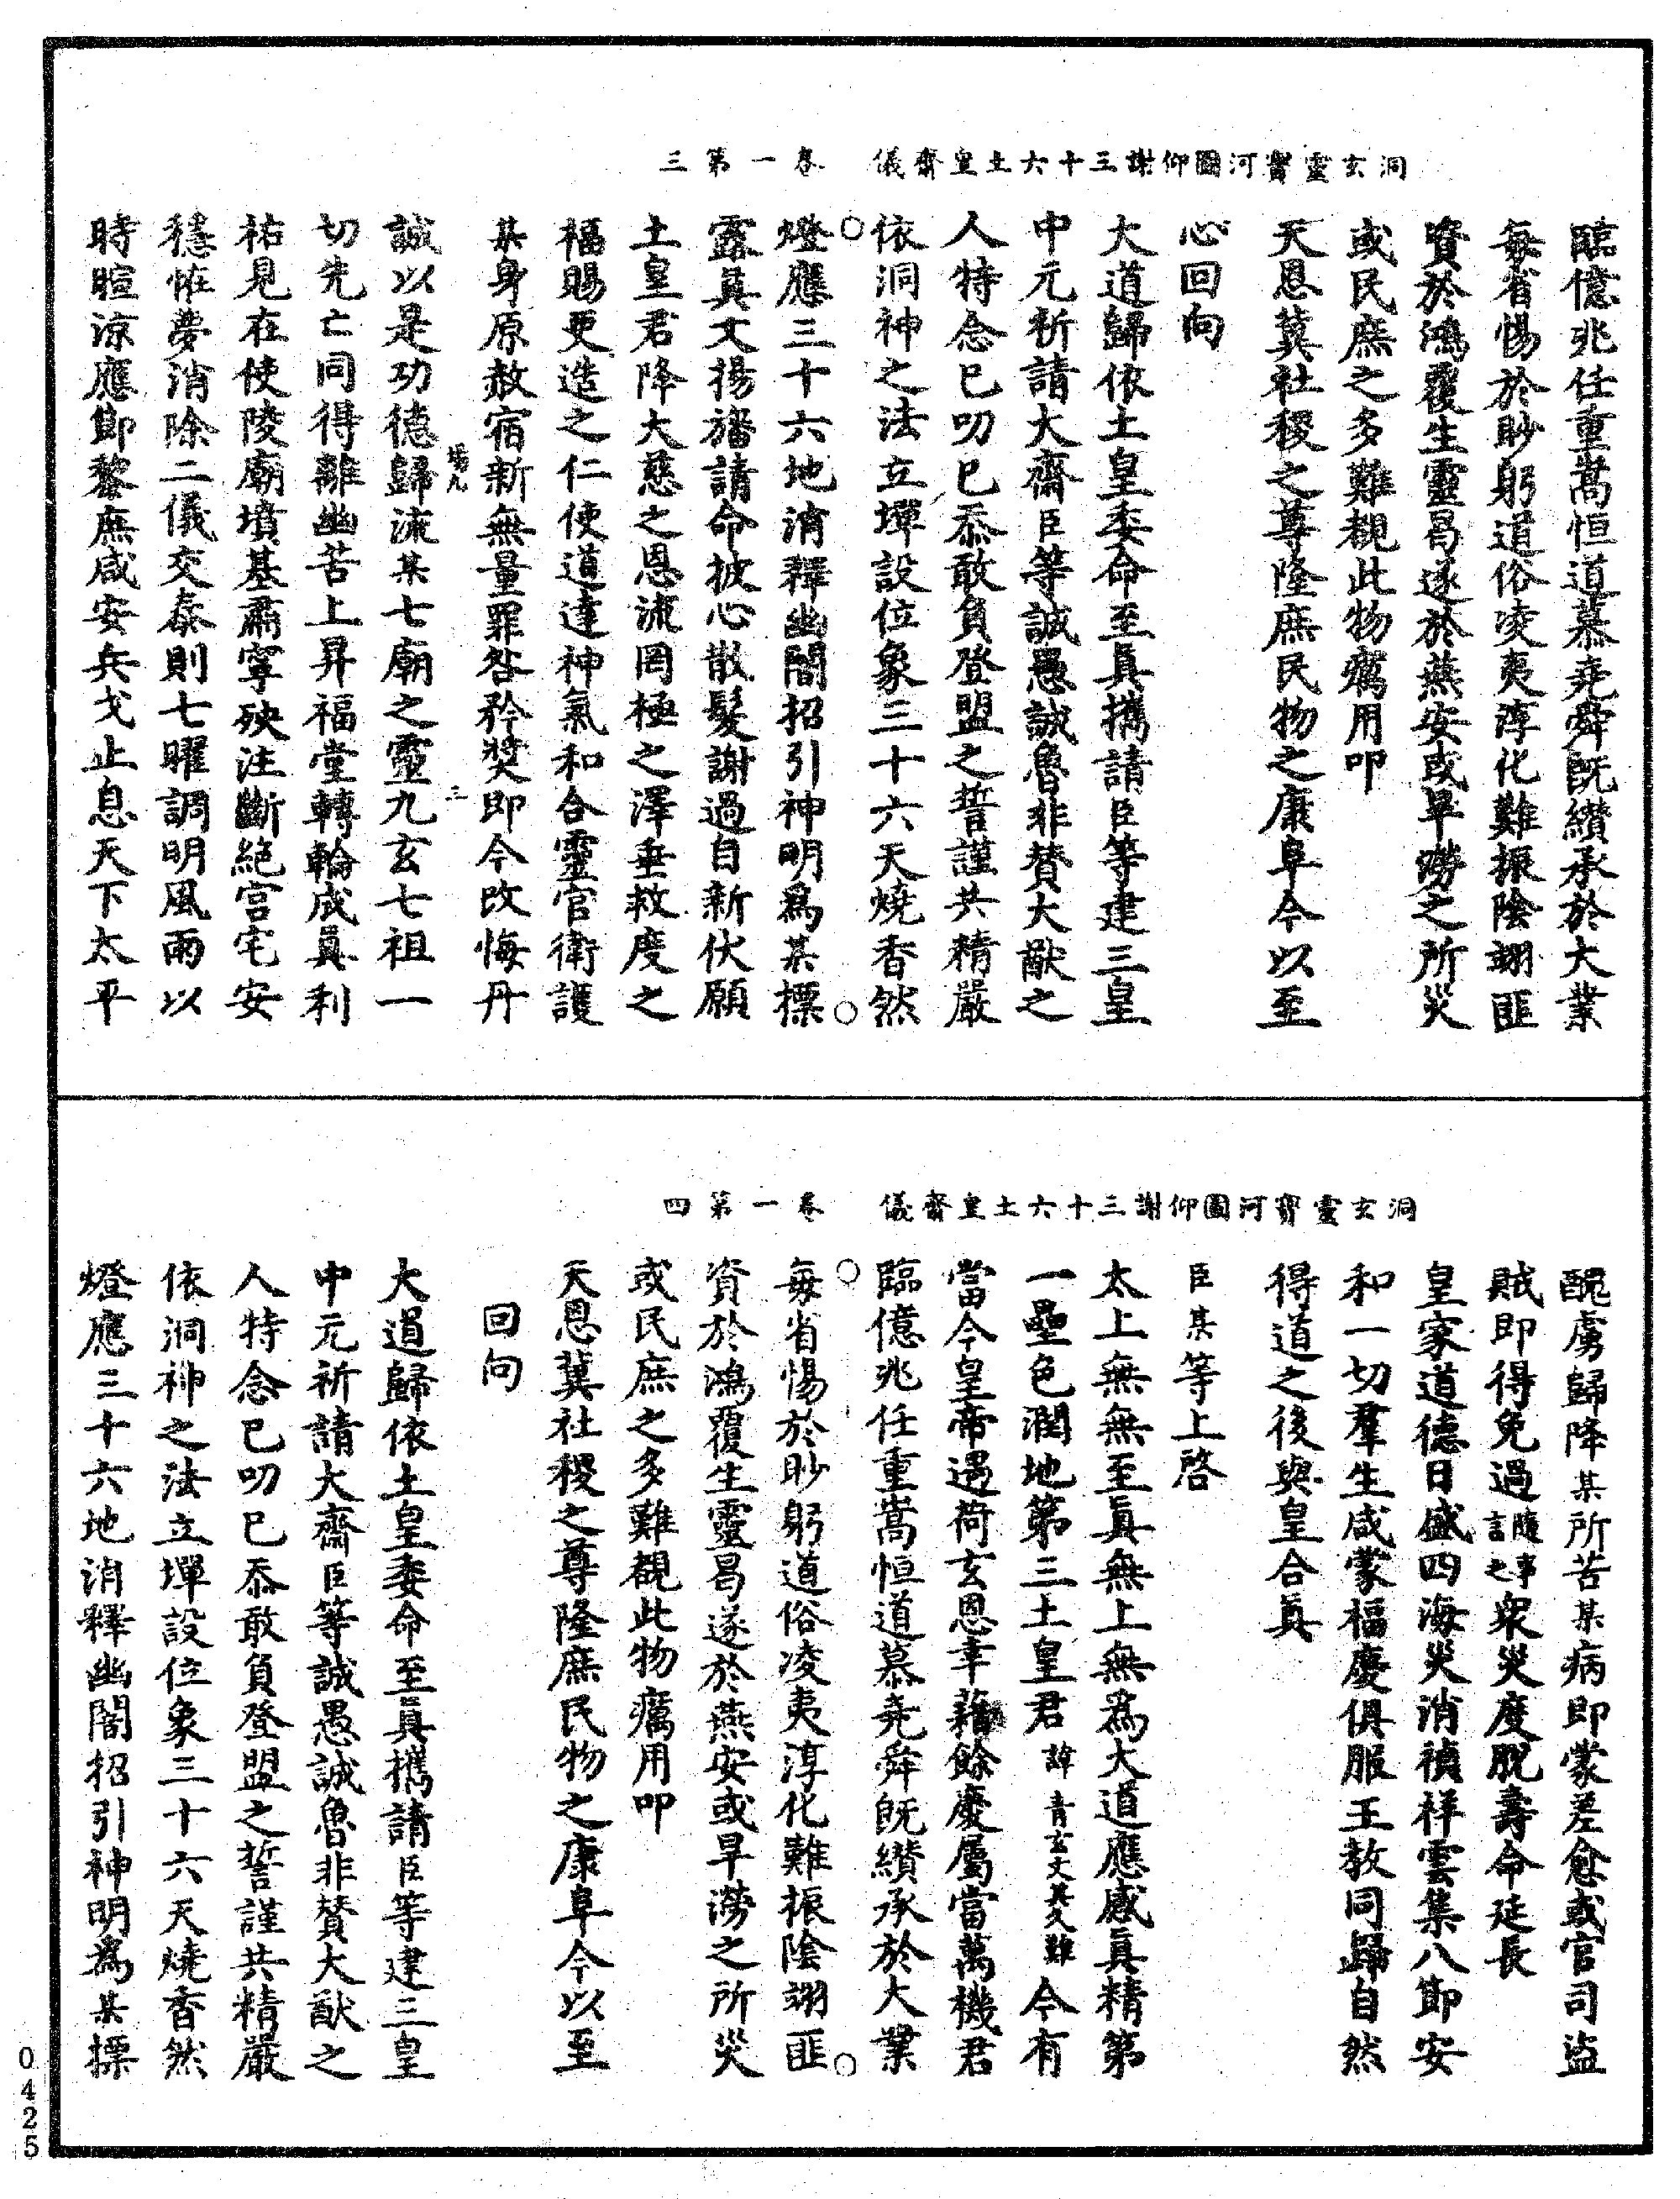 洞玄靈寶河圖仰謝三十六土皇齋儀　卷一第三
臨億兆任重嵩恒道慕堯舜旣纘承於大業
每省惕於眇躬道俗凌夷淳化難振陰翊匪
資於鴻覆生靈曷遂於燕安或旱澇之所災
或民庶之多難覩此物癘用叩
天恩冀社稷之尊隆庶民物之康阜今以至
心回向
大道歸依土皇委命至眞攜請臣等建三皇
中元祈請大齋臣等誠愚誠魯非賛大猷之
人特念已叨已忝敢負登盟之誓謹共精嚴
依洞神之法立墠設位象三十六天燒香然
燈應三十六地消釋幽闇招引神明爲某摽
露眞文揚旛請命披心散髮謝過自新伏願
土皇君降大慈之恩流罔極之澤垂救度之
福賜更造之仁使道達神氣和合靈官衛護
某身原赦宿新無量罪咎矜奬即今改悔丹
場九　三
誠以是功德歸流某七廟之靈九玄七祖一
切先亡同得離幽苦上昇福堂轉輪成眞利
祐見在使陵廟墳基肅寧殃注斷絕宫宅安
穩恠夢消除二儀交泰則七曜調明風雨以
時暄涼應節黎庶咸安兵戈止息天下太平
洞玄靈寶河圖仰謝三十六土皇齋儀　卷一第四
醜虜歸降某所苦某病即蒙差愈或官司盜
賊即得免過隨事言之衆災度脫壽命延長
皇家道德日盛四海災消禎祥雲集八節安
和一切羣生咸蒙福慶俱服王教同歸自然
得道之後與皇合眞
臣某等上啓
太上無無至眞無上無爲大道應感眞精第
一壘色潤地第三土皇君諱青玄文其久難今有
當今皇帝遇荷玄恩幸藉餘慶屬當萬機君
臨億兆任重嵩恒道慕堯舜旣纘承於大業
每省惕於眇躬道俗凌夷淳化難振陰翊匪
資於鴻覆生靈曷遂於燕安或旱澇之所災
或民庶之多難覩此物癘用叩
天恩冀社稷之尊隆庶民物之康阜今以至
回向
大道歸依土皇委命至眞攜請臣等建三皇
中元祈請大齋臣等誠愚誠魯非賛大猷之
人特念已叨已忝敢負登盟之誓謹共精嚴
依洞神之法立墠設位象三十六天燒香然
燈應三十六地消釋幽闇招引神明爲某摽
0425